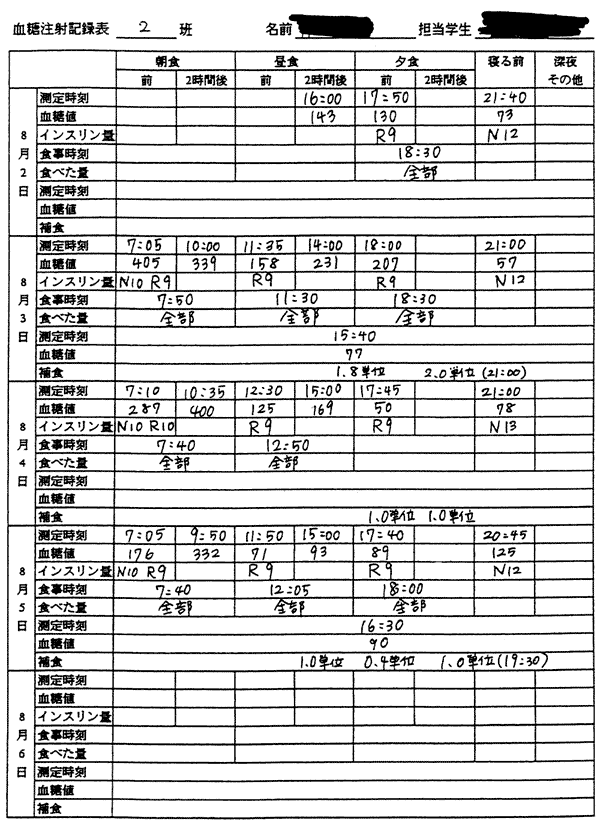 血糖注射記録表 2 班 名前 担当学生
朝食 昼食 夕食 寝る前 深夜
前 2時間後 前 2時間後 前 2時間後 その他
8月2日
測定時刻 16:00 17:50 21:40
血糖値 143 130 73
インスリン量 R9 N12
食事時刻 18:30
食べた量 全部
測定時刻
血糖値
補食
8月3日
測定時刻 7:05 10:00 11:35 14:00 18:00 21:00
血糖値 405 339 158 231 207 57
インスリン量 N10 R9 R9 R9 N12
食事時刻 7:50 11:30 18:30
食べた量 全部 全部 全部
測定時刻 15:40
血糖値 77
補食 1.8単位 2.0単位(21:00)
8月4日
測定時刻 7:10 10:35 12:30 15:00 17:45 21:00
血糖値 287 400 125 169 50 78
インスリン量 N10 R10 R9 R9 N13
食事時刻 7:40 12:50
食べた量 全部 全部
測定時刻
血糖値
補食 1.0単位 1.0単位
8月5日
測定時刻 7:05 9:50 11:50 15:00 17:40 20:45
血糖値 176 332 71 93 89 125
インスリン量 N10 R9 R9 R9 N12
食事時刻 7:40 12:05 18:00
食べた量 全部 全部 全部
測定時刻 16:30
血糖値 90
補食 1.0単位 0.4単位 1.0単位(19:30)
8月6日
測定時刻
血糖値
インスリン量
食事時刻
食べた量
測定時刻
血糖値
補食